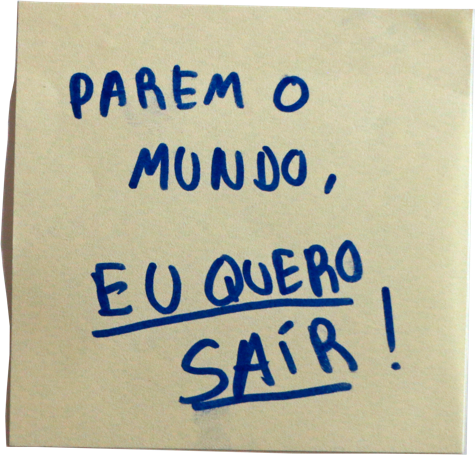 PAREM O
MUNDO,
EU QUERO
SAÍR!